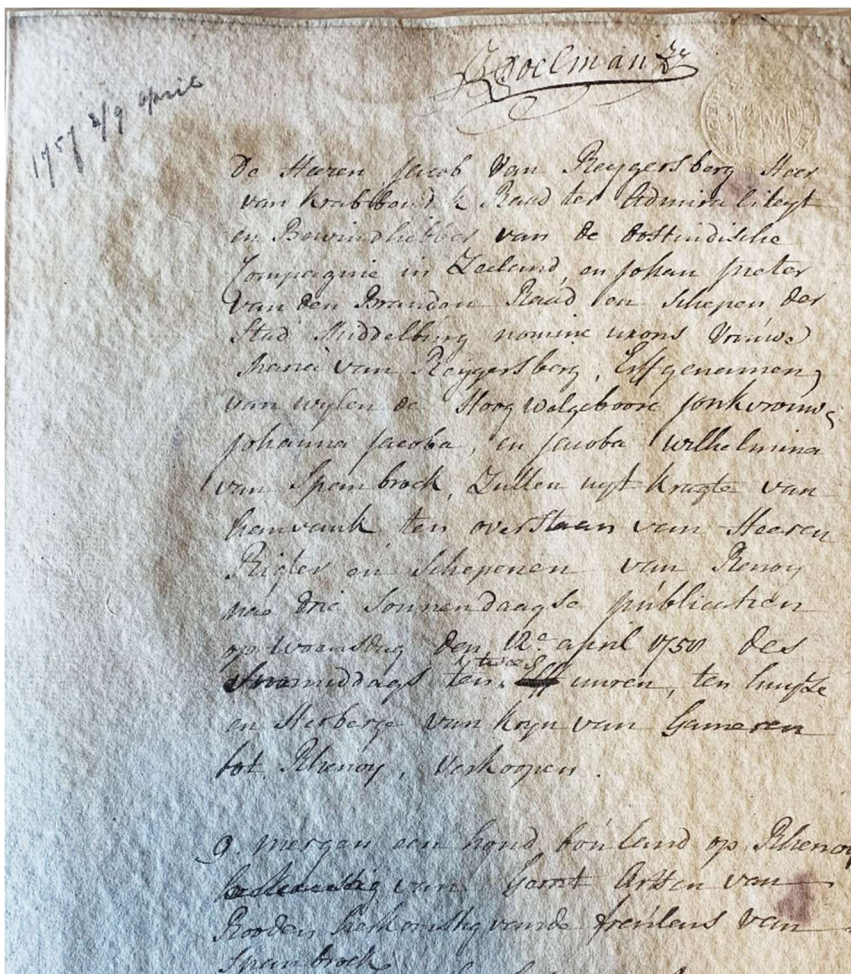 Doelman
1757 2/9 april
De Heeren Jacob Van Reygersberg Heer
van Krabbend k Raad ter Admiraliteyt
en Bewindhebber van de Oostindische
Compagnie in Zeeland, en Johan Pieter
van den Branden Raad en Schepen der
Stad Middelburg nomine uxoris Vrouwe
Maria van Reygersberg, Erffgenamen
van wylen de Hoog Welgeboore Jonkvrouwe
Johanna Jacoba, en Jacoba Wilhelmina
van Spanbroek, Zullen uyt kragte van
ten overstaan van Heeren
Rigter en Schepenen van Renoy
nae drie Sonnendaagse publicatien
op Woensdag den 12e april 1758 des
middags ten twee uuren, ten huyse
en Herberge van Kryn van Gameren
tot Rhenoy, Verkoopen.
9 mergen een hond bouland op Rhenoy
van Gerrit Artsen van
Rooden herkomstig vande freulens van
Spanbroek